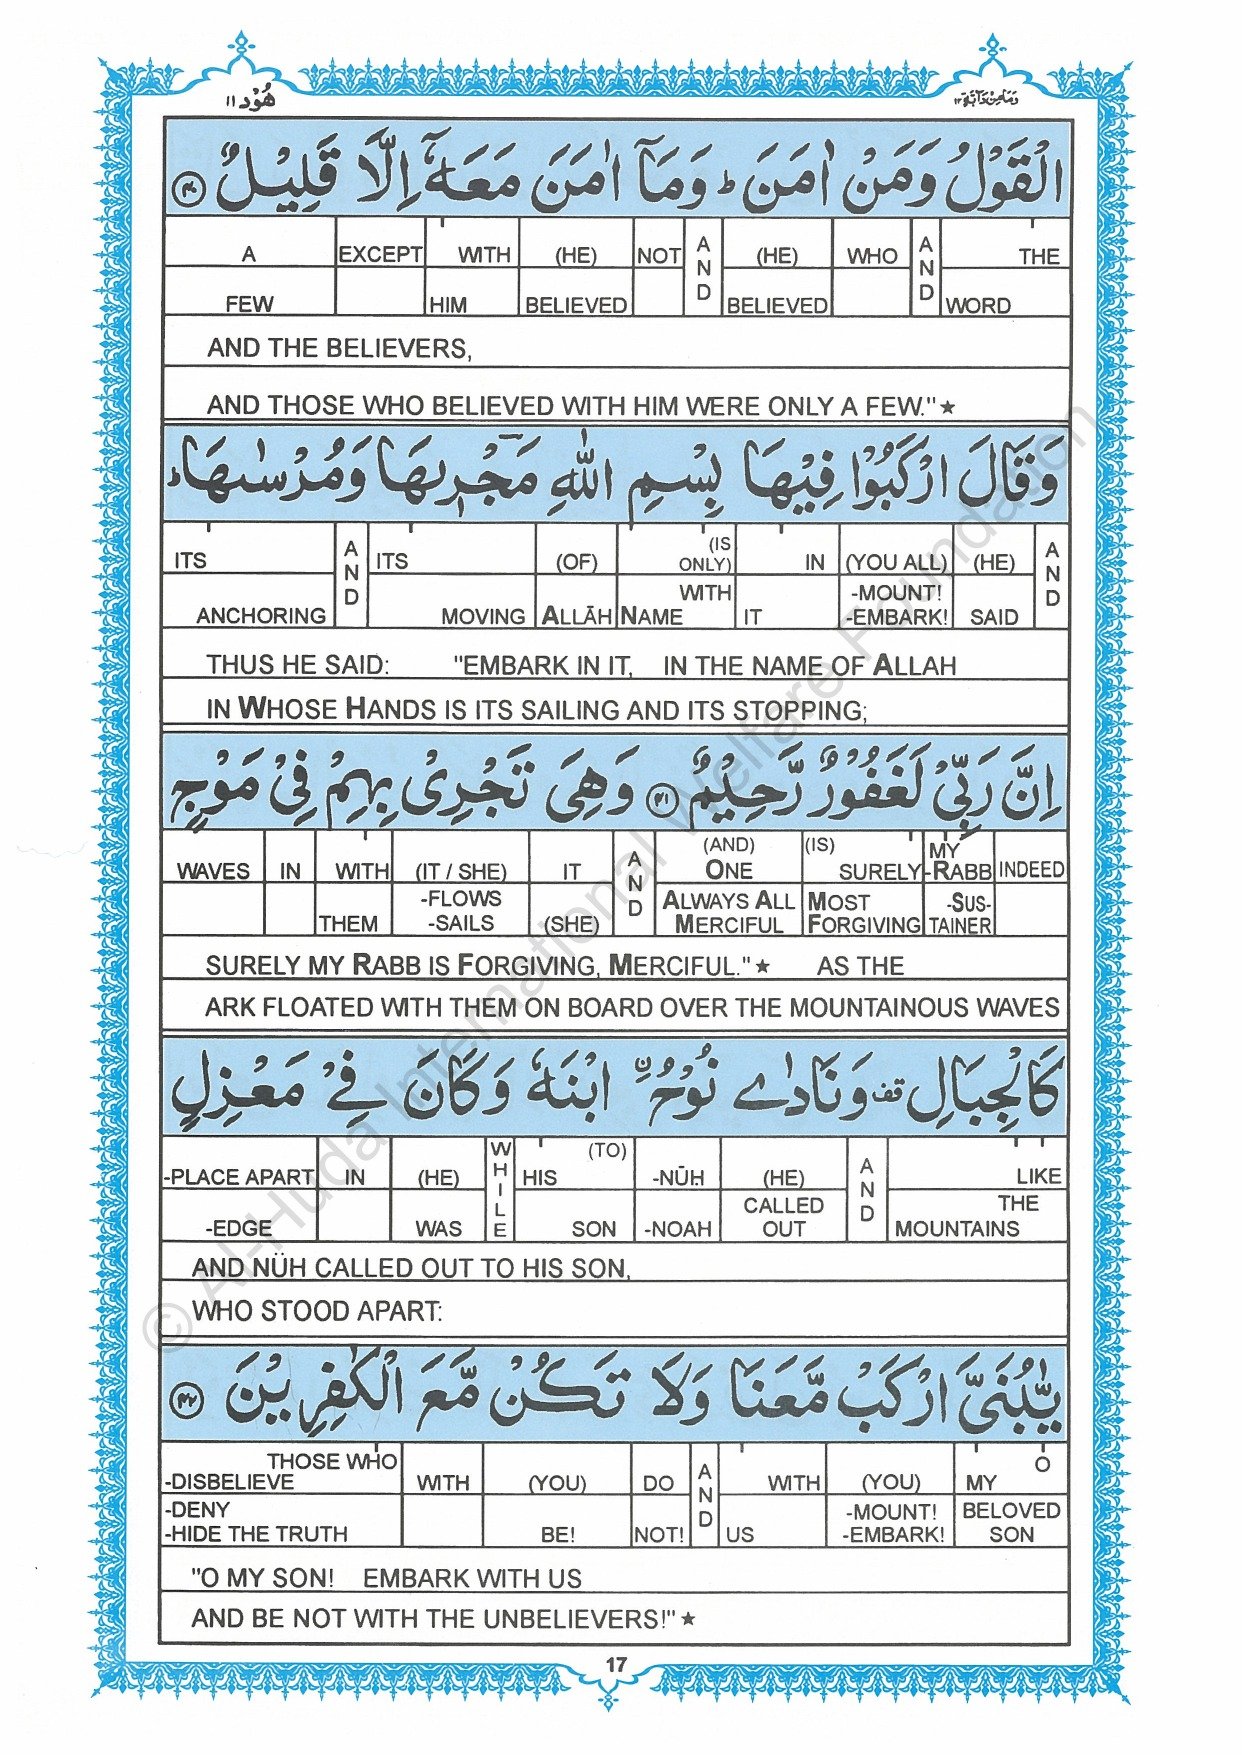 هُوْد ١١
وَمَا مِنْ دَآبَّةٍ ١٢
الْقَوْلُ وَمَنْ اٰمَنَ ؕ وَمَاۤ اٰمَنَ مَعَهٗۤ اِلَّا قَلِيْلٌ ۝٤٠
A EXCEPT WITH (HE) NOT AND (HE) WHO AND THE
FEW HIM BELIEVED BELIEVED WORD
AND THE BELIEVERS,
AND THOSE WHO BELIEVED WITH HIM WERE ONLY A FEW."★
وَقَالَ ارْكَبُوْا فِيْهَا بِسْمِ اللّٰهِ مَجْرٖىهَا وَمُرْسٰىهَا ؕ
ITS AND ITS (OF) (IS ONLY) IN (YOU ALL) (HE) AND
ANCHORING MOVING ALLĀH WITH NAME IT -MOUNT! -EMBARK! SAID
THUS HE SAID: "EMBARK IN IT, IN THE NAME OF ALLAH
IN WHOSE HANDS IS ITS SAILING AND ITS STOPPING;
اِنَّ رَبِّيْ لَغَفُوْرٌ رَّحِيْمٌ ۝٤١ وَهِيَ تَجْرِيْ بِهِمْ فِيْ مَوْجٍ
WAVES IN WITH (IT / SHE) IT AND (AND) ONE (IS) SURELY MY -RABB INDEED
THEM -FLOWS -SAILS (SHE) ALWAYS ALL MERCIFUL MOST FORGIVING -SUS- TAINER
SURELY MY RABB IS FORGIVING, MERCIFUL."★ AS THE
ARK FLOATED WITH THEM ON BOARD OVER THE MOUNTAINOUS WAVES
كَالْجِبَالِ قف وَنَادٰى نُوْحُ ۨ ابْنَهٗ وَكَانَ فِيْ مَعْزِلٍ
-PLACE APART IN (HE) WHILE HIS (TO) -NŪH (HE) AND LIKE
-EDGE WAS SON -NOAH CALLED OUT THE MOUNTAINS
AND NÜH CALLED OUT TO HIS SON,
WHO STOOD APART:
يّٰبُنَيَّ ارْكَبْ مَّعَنَا وَلَا تَكُنْ مَّعَ الْكٰفِرِيْنَ ۝٤٢
THOSE WHO -DISBELIEVE WITH (YOU) DO AND WITH (YOU) MY O
-DENY -HIDE THE TRUTH BE! NOT! US -MOUNT! -EMBARK! BELOVED SON
"O MY SON! EMBARK WITH US
AND BE NOT WITH THE UNBELIEVERS!"★
17
© Al-Huda International Welfare Foundation